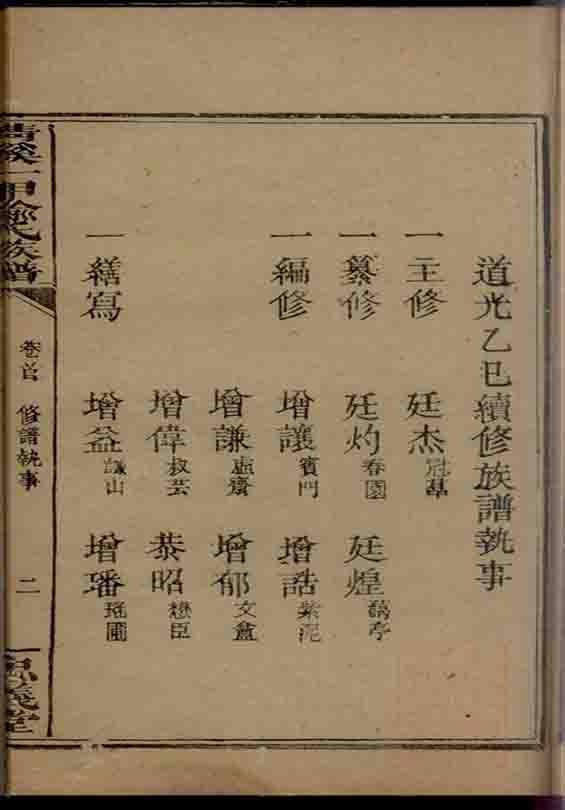 道光乙巳續修族譜執事
一主修 廷杰冠羣
一纂修 廷灼春園 廷煌鶴亭
一編修 增讓賓門 增誥紫泥
增謙虛齋 增郁文盦
增偉叔芸 恭昭懋臣
一繕寫 增益謙山 增璠瑤圃
一甲鄭氏族譜
卷首 修譜執事
二
義堂